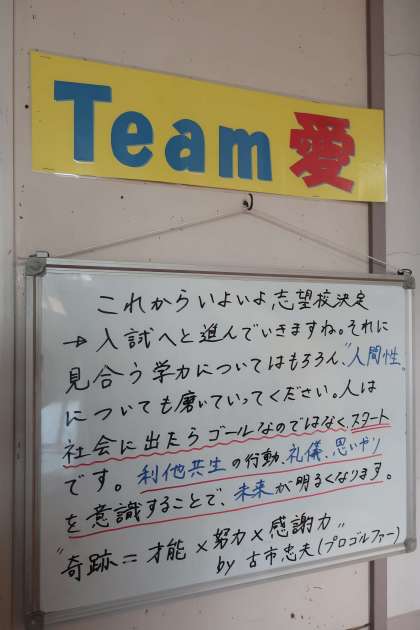 Team 愛
これからいよいよ志望校決定
→入試へと進んでいきますね。それに
見合う学力についてはもろろん、"人間性"
についても磨いていってください。人は
社会に出たらゴールなのではなく、スタート
です。利他共生の行動、礼儀、思いやり
を意識することで、未来が明るくなります。
"奇跡＝才能×努力×感謝力"
by 古市忠夫(プロゴルファー)